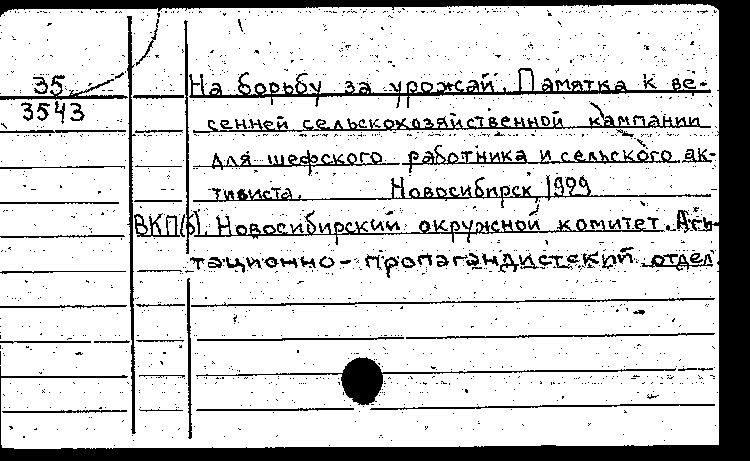 35
3543
На борьбу за урожай. Памятка к ве-
сенней сельскохозяйственной кампании
для шефского работника и сельского ак-
тивиста. Новосибирск, 1929
ВКП(б). Новосибирский окружной комитет. Аги-
тационно-пропагандистский отдел.